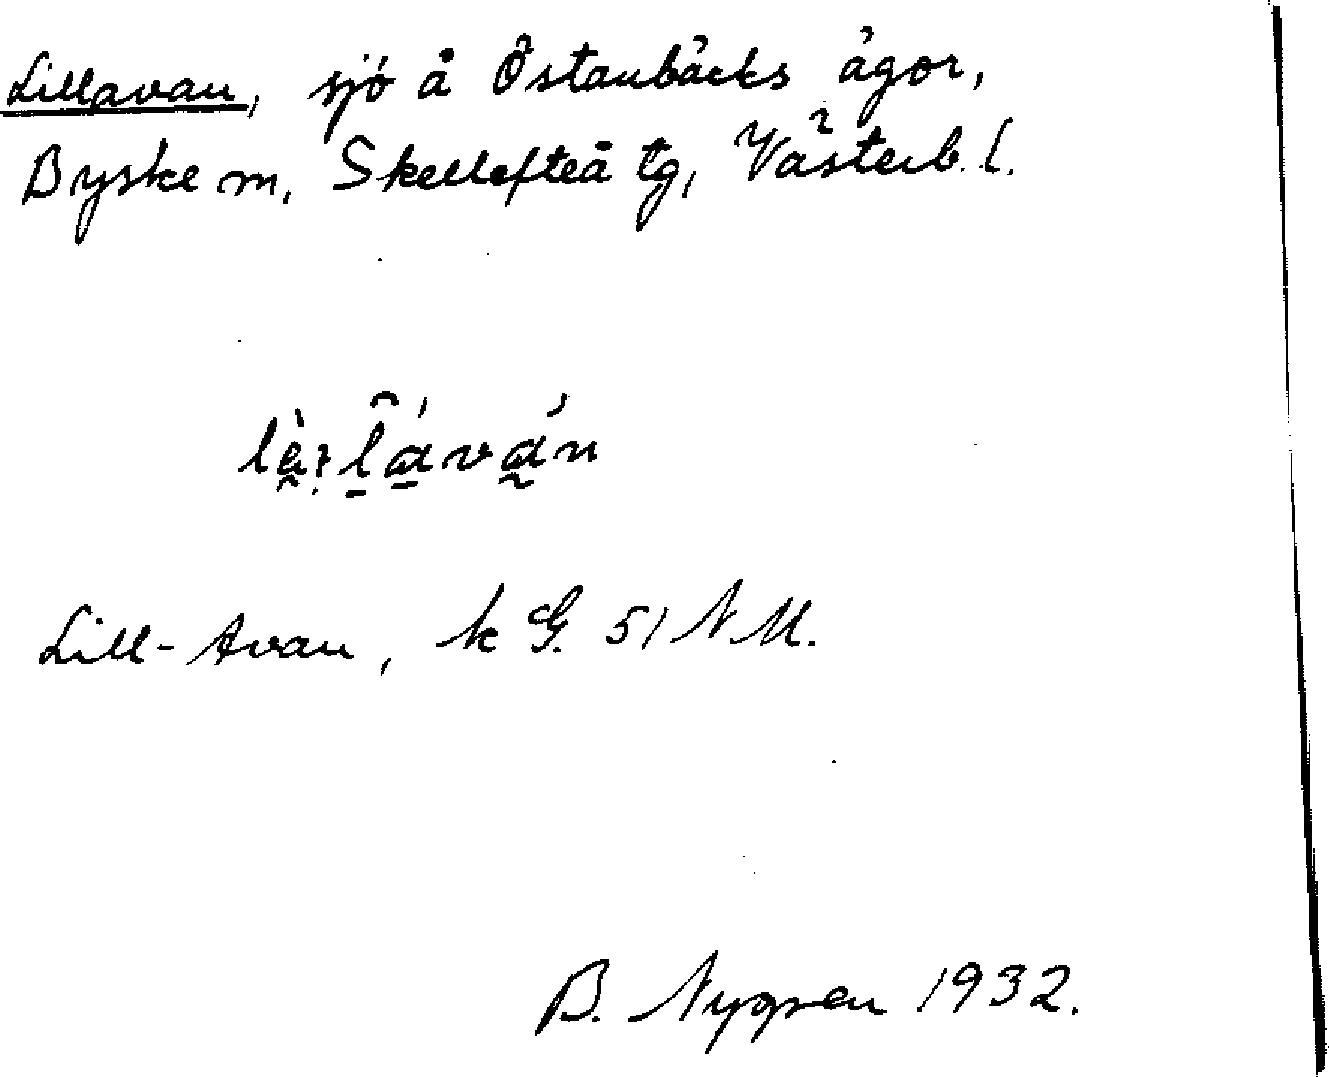 Lillavan, sjö å Östanbäcks ägor,
Byske sn, Skellefteå tg, Västerb. l.
Lill-Avan, k G. 51 NM.
B. Nygren 1932.